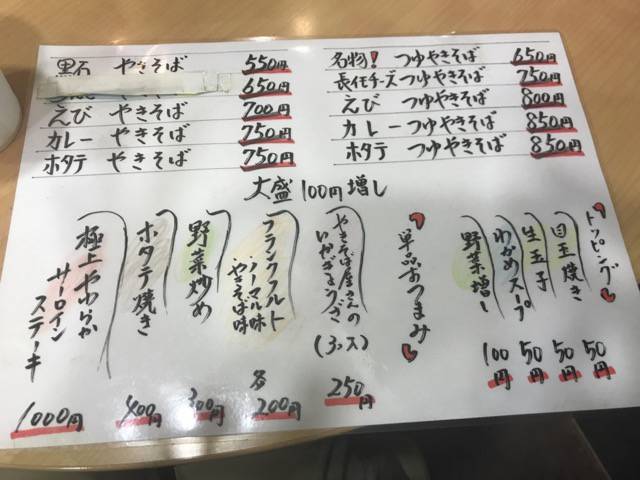 黒石 やきそば 550円
650円
えび やきそば 700円
カレー やきそば 750円
ホタテ やきそば 750円
名物! つゆやきそば 650円
長任チーズつゆやきそば 750円
えび つゆやきそば 800円
カレーつゆやきそば 850円
ホタテ つゆやきそば 850円
大盛 100円増し
トッピング
目玉焼き 50円
生玉子 50円
わかめスープ 50円
野菜増し 100円
単品おつまみ
やきそば屋さんの
いかぎょうざ (3コ入) 250円
フランクフルト
ノーマル味
やきそば味 各200円
野菜炒め 300円
ホタテ焼き 400円
極上やわらか
サーロイン
ステーキ 1000円